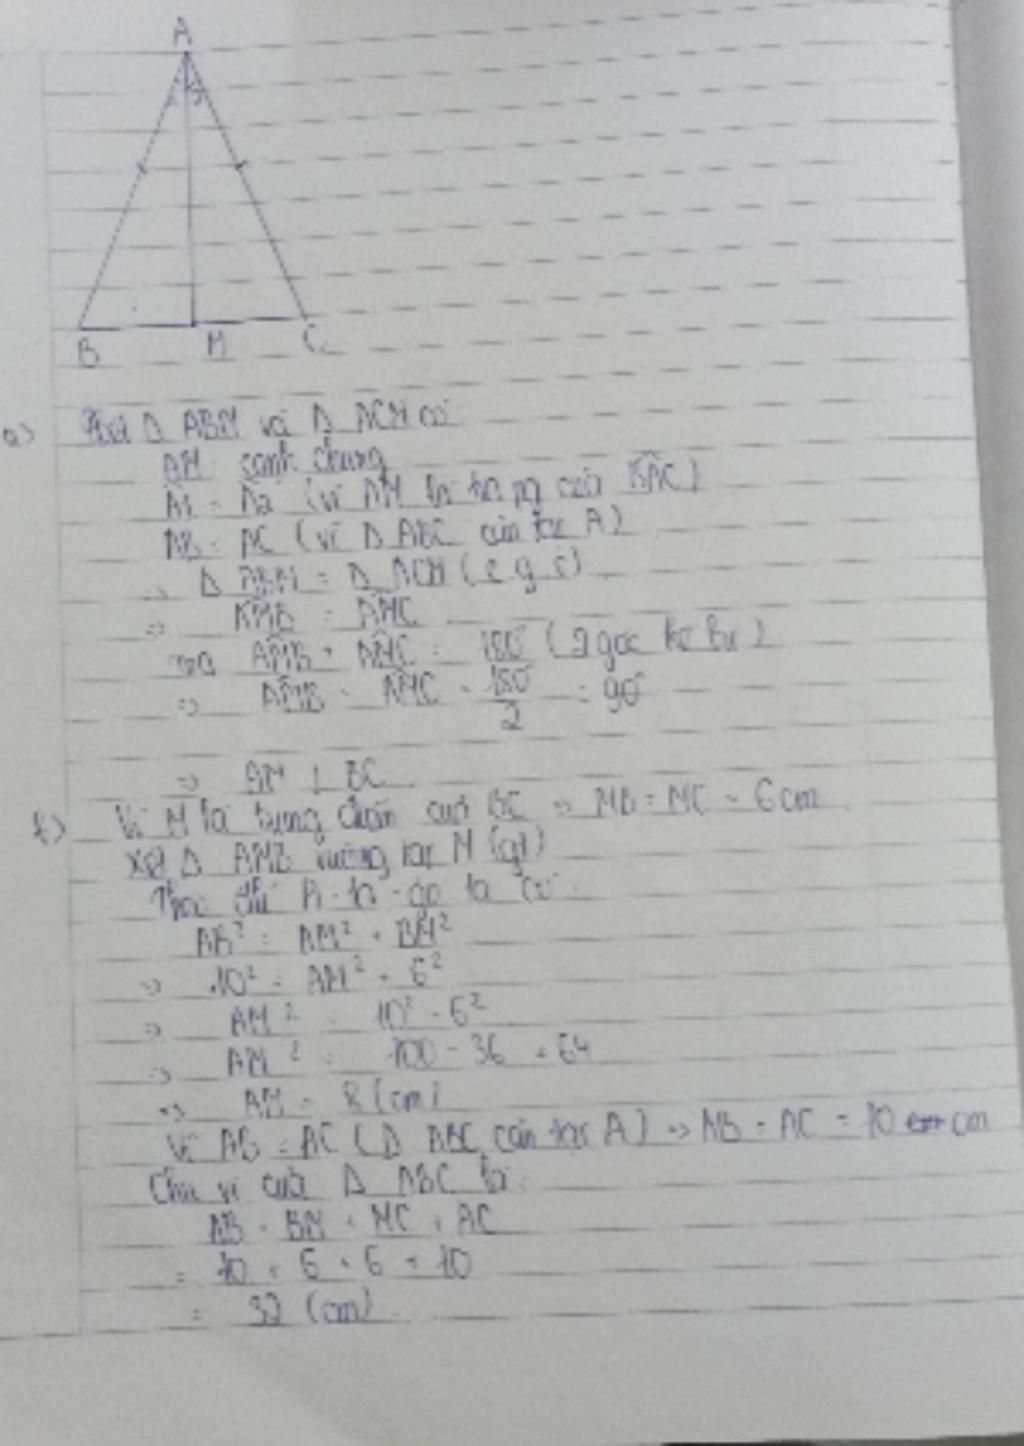 A
B M C
a) Xét Δ ABM và Δ ACM có:
AM: cạnh chung
Â1 = Â2 (vì AM là của BÂC)
AB = AC (vì Δ ABC cân tại A)
=> Δ ABM = Δ ACM (c.g.c)
=> AM̂B = AM̂C
mà AM̂B + AM̂C = 180° (2 góc kề bù)
=> AM̂B = AM̂C = 180°/2 = 90°
=> AM ⊥ BC
b) Vì M là trung điểm của BC => MB = MC = 6cm
Xét Δ AMB vuông tại M (gt)
Theo đlí Pi-ta-go ta có:
AB² = AM² + BM²
=> 10² = AM² + 6²
=> AM² = 10² - 6²
=> AM² = 100 - 36 = 64
=> AM = 8 (cm)
Vì AB = AC (Δ ABC cân tại A) => AB = AC = 10 cm
Chu vi của Δ ABC là:
AB + BM + MC + AC
= 10 + 6 + 6 + 10
= 32 (cm)